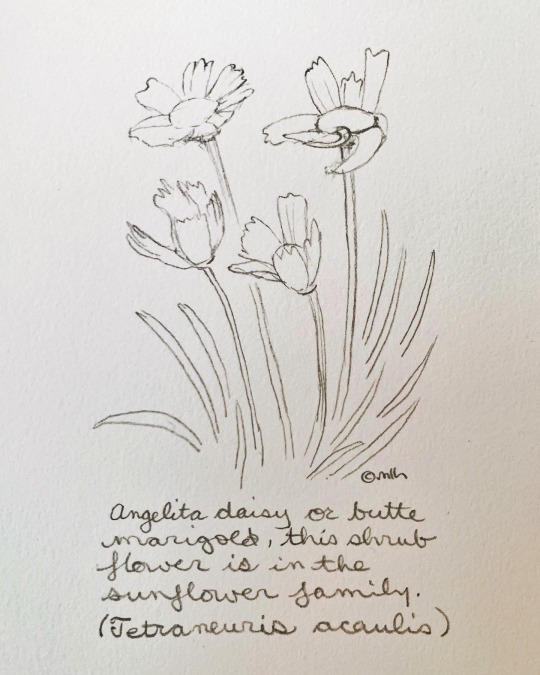 ©mlh
Angelita daisy or butte
marigold, this shrub
flower is in the
sunflower family.
(Tetraneuris acaulis)